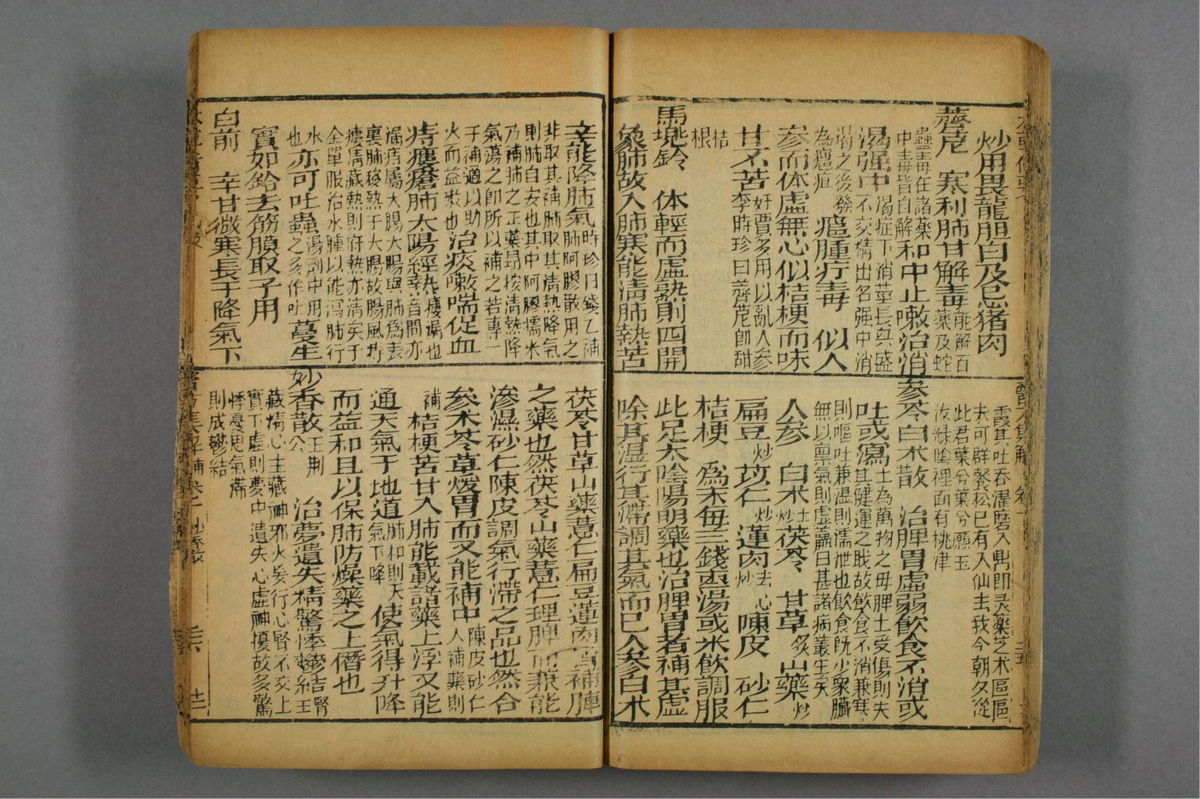 炒用畏龍胆白及忌猪肉
薺苨 寒利肺甘解毒 能解百藥及蛇
蠱毒在諸藥中毒皆自解 和中止嗽治消
渴强中 渴症下消莖長興盛不交精出名强中消
渴之後發為癰疽 癰腫疔毒 似人
参而体虛無心似桔梗而味
甘不苦 奸賈多用以亂人参李時珍曰薺苨即甜
桔根
馬兠鈴 体輕而虛熟則四開
象肺故入肺寒能清肺熱苦
霞其吐吞濯磨入鼎即灵藥芝术區區夫可群餐松已有入仙去我今朝夕從
此君葉兮葉兮願玉汝緑陰裡面有桃津
参苓白朮散 治脾胃虛弱飲食不消或
吐或瀉 土為萬物之毋脾土受傷則失其健運之職故飲食不消兼寒
則嘔吐兼湿則濡泄也飲食既少衆臟無以禀氣則虛羸日甚諸病叢生矣
人参 白朮土炒 茯苓 甘草炙 山藥炒
扁豆炒 苡仁炒 蓮肉去心炒 陳皮 砂仁
桔梗 為末每三錢棗湯或米飲調服
此足太陰陽明藥也治脾胃者補其虛
除其湿行其滯調其氣而已人参白术
辛能降肺氣 時珍曰錢乙補肺阿膠散用之
非取其補肺取其清熱降氣則肺自安也其中阿膠糯米
乃補肺之正藥昂按清熱降氣瀉之即所以補之若專一
于補適以助火而益嗽也 治痰嗽喘促血
痔瘻瘡肺大腸經熱
漏痔屬大腸大腸與肺為表裏肺移熱于大腸故腸風痔
瘻清藏熱則府熱亦清矣千金單服治水腫以能瀉肺行
水也 亦可吐蠱 湯劑中用之多作吐 蔓生
實如鈴去筋膜取子用
白前 辛甘微寒長于降氣下
茯苓甘草山藥薏仁扁豆蓮肉皆補脾
之藥也然茯苓山藥薏仁理脾而兼能
滲濕砂仁陳皮調氣行滯之品也然合
参朮苓草煖胃而又能補中 陳皮砂仁入補藥則
補 桔梗苦甘入肺能載諸藥上浮又能
通天氣于地道 肺和則天氣下降 使氣得升降
而益和且以保肺防燥藥之上僭也
妙香散 王荆公 治夢遺失精驚悸鬱結 腎
藏精心主藏神邪火妄行心腎不交上實下虛則夢中遺失心虛神擾故多驚
悸憂思氣滯則成鬱結